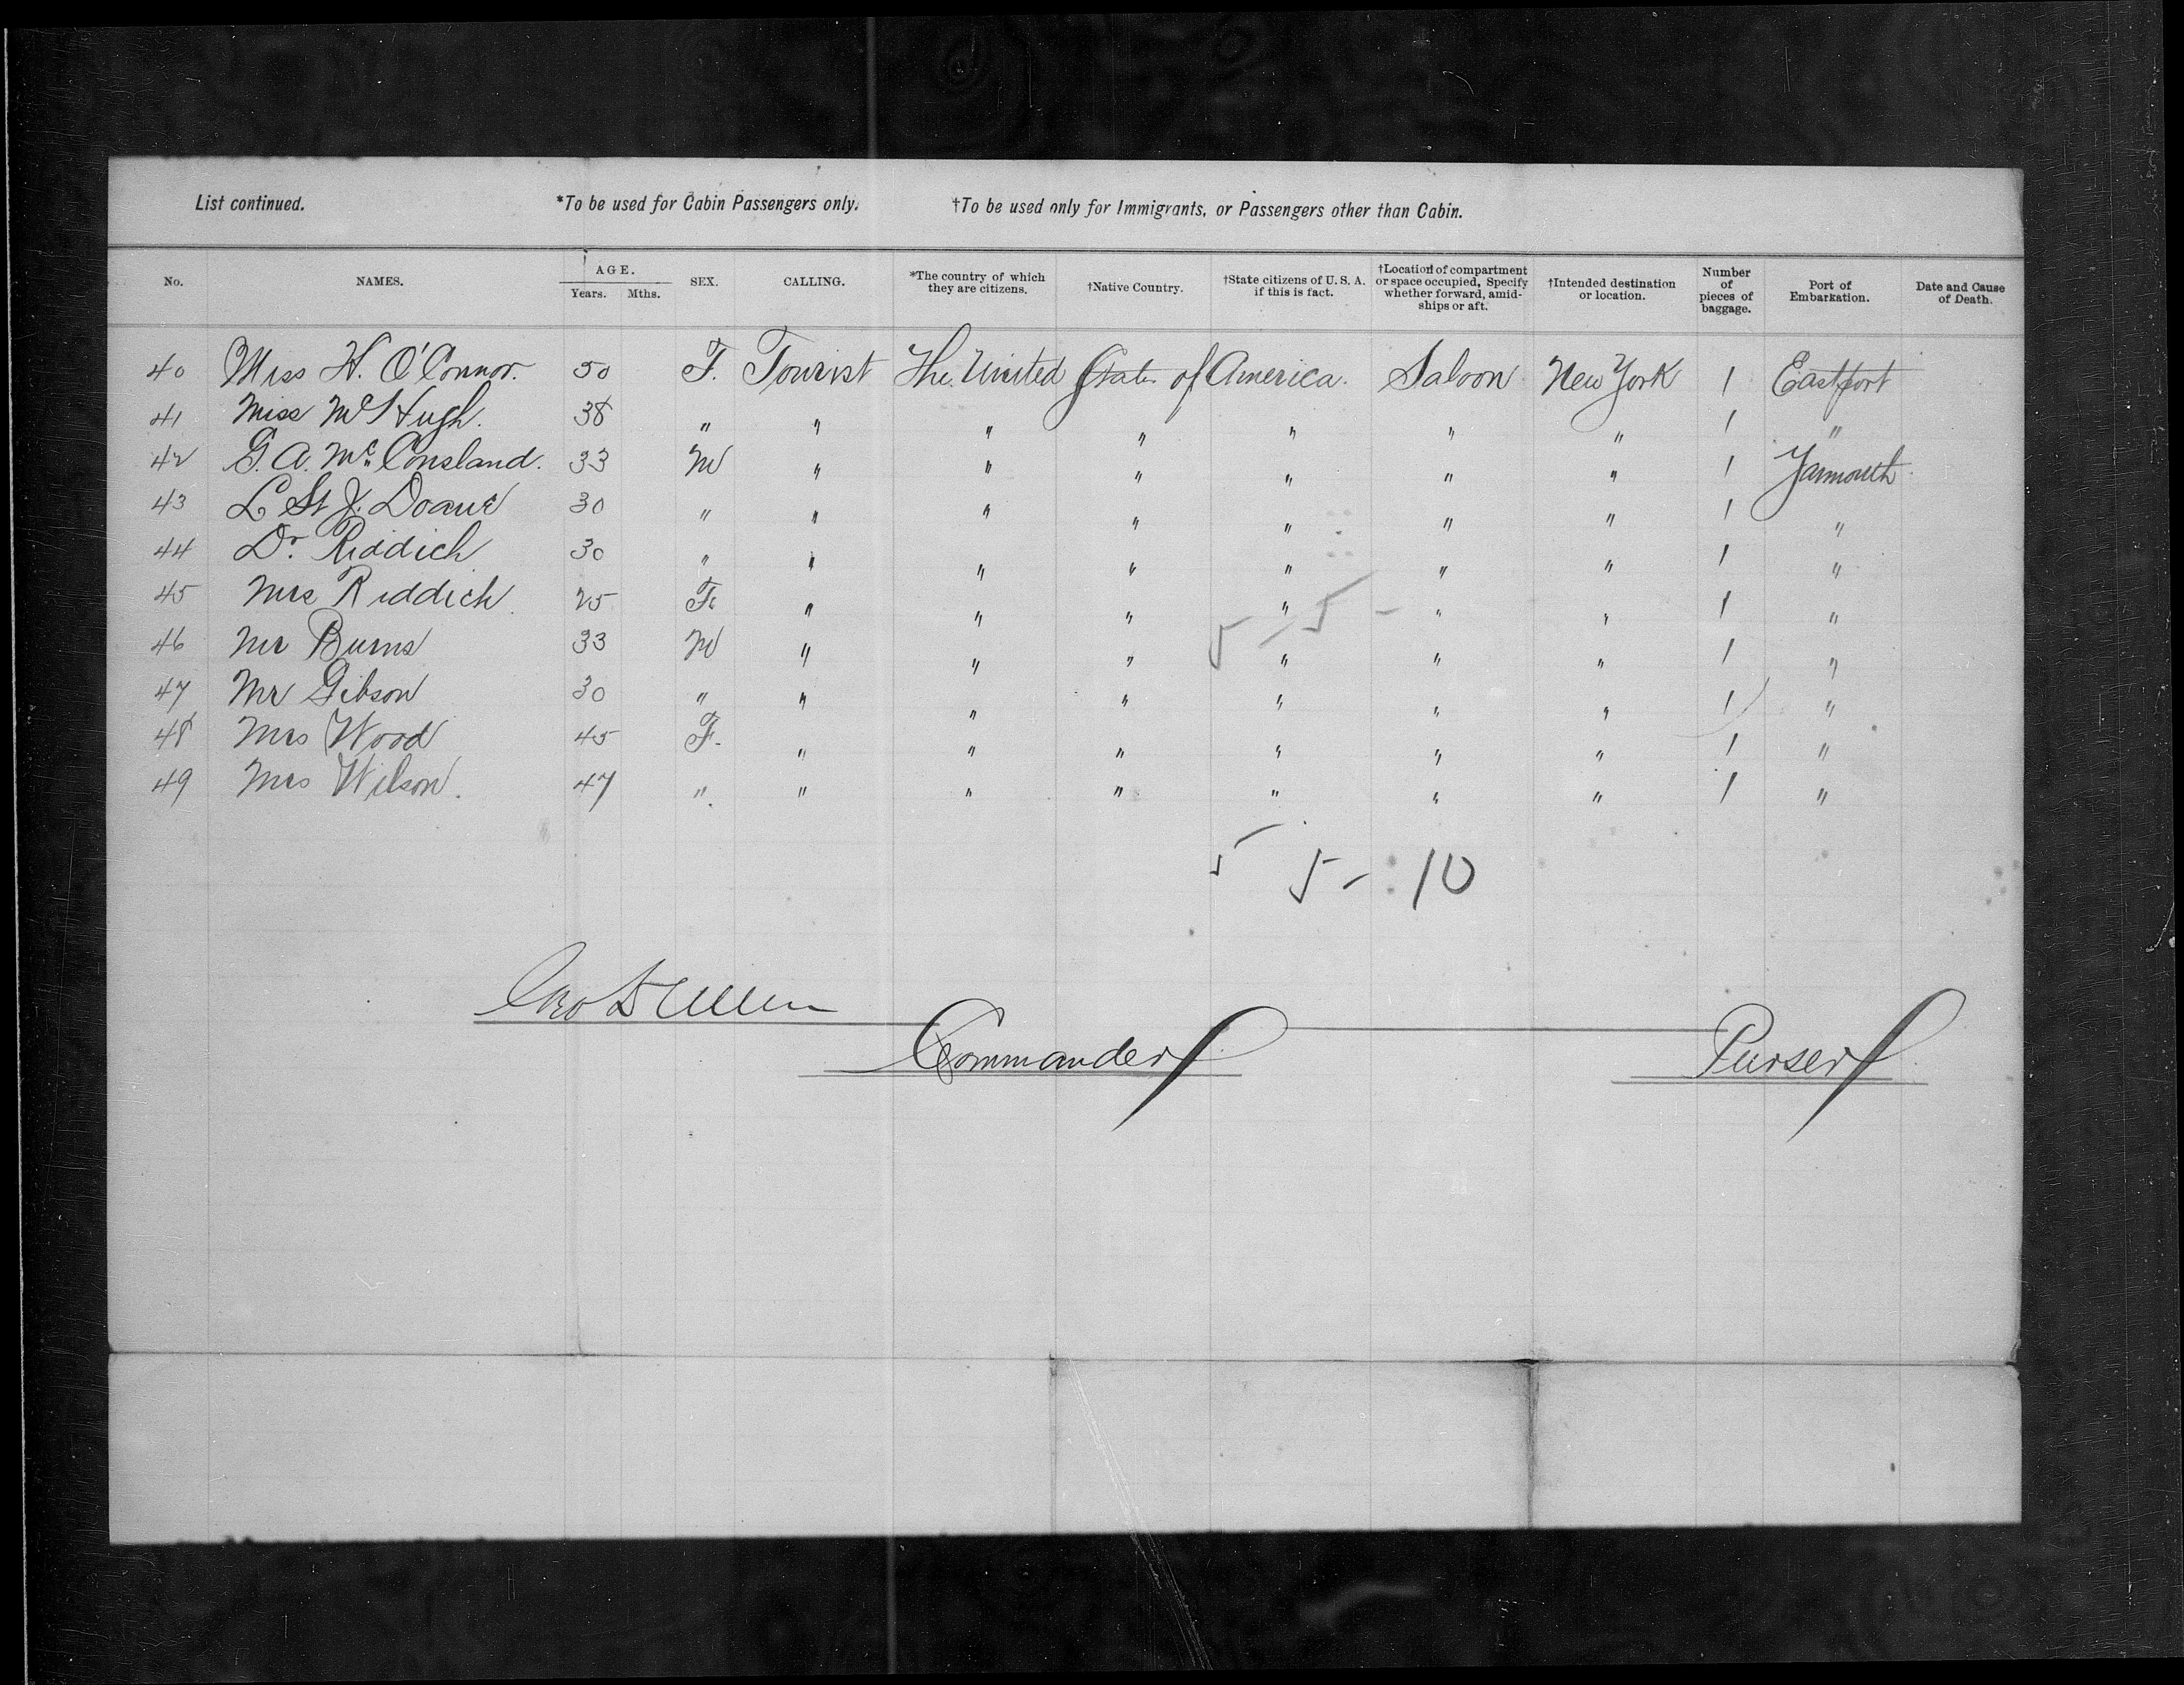 List continued. *To be used for Cabin Passengers only. †To be used only for Immigrants, or Passengers other than Cabin.
No. NAMES. AGE. Years. Mths. SEX. CALLING. *The country of which they are citizens. †Native Country. †State citizens of U.S.A. if this is fact. †Location of compartment or space occupied, Specify whether forward, amid-ships or aft. †Intended destination or location. Number of pieces of baggage. Port of Embarkation. Date and Cause of Death.
40 Miss H. O'Connor. 50 F. Tourist The United States of America. Saloon New York 1 Eastport
41 Miss McHugh. 38 " " " " " " " 1 "
42 G. A. Mc. Consland. 33 M " " " " " " 1 Yarmouth
43 L St J. Doane 30 " " " " " " " 1 "
44 Dr. Riddich 30 " " " " " " " 1 "
45 Mrs Riddich 25 F. " " " " " " 1 "
46 Mr Burns 33 M " " " " " " 1 "
47 Mr Gibson 30 " " " " " " " 1 "
48 Mrs Wood 45 F. " " " " " " 1 "
49 Mrs Wilson. 47 " " " " " " " 1 "
5 - 5 -
5 5 - 10
Commander
Purser